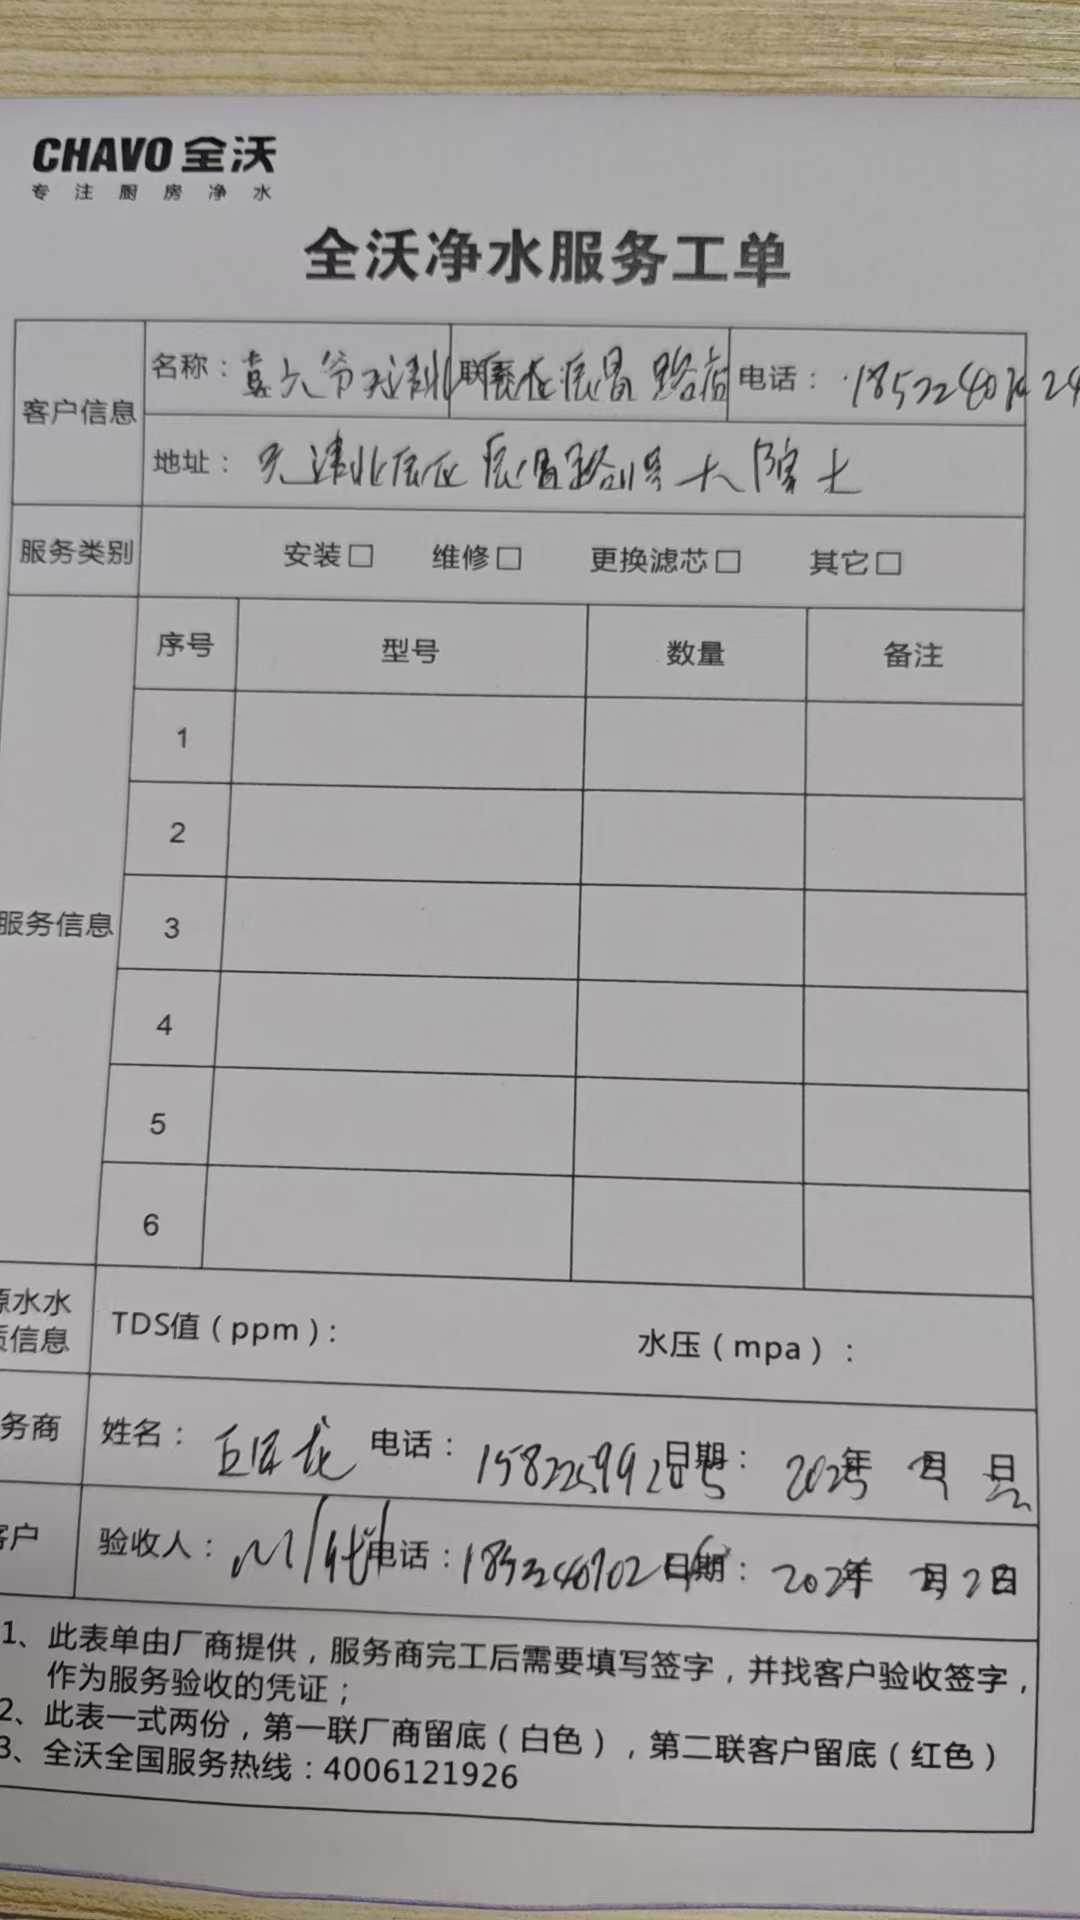 CHAVO 全沃
专注厨房净水
全沃净水服务工单
客户信息 名称：六爷天津北辰 联系 辰昌路店 电话：
地址：天津北辰 辰昌路 号大院
服务类别 安装□ 维修□ 更换滤芯□ 其它□
序号 型号 数量 备注
1
2
服务信息 3
4
5
6
源水水质信息 TDS值（ppm）： 水压（mpa）：
务商 姓名： 龙 电话： 日期：2025年 月 日
客户 验收人： 电话： 日期： 年 月2日
1、此表单由厂商提供，服务商完工后需要填写签字，并找客户验收签字，
作为服务验收的凭证；
2、此表一式两份，第一联厂商留底（白色），第二联客户留底（红色）
3、全沃全国服务热线：4006121926